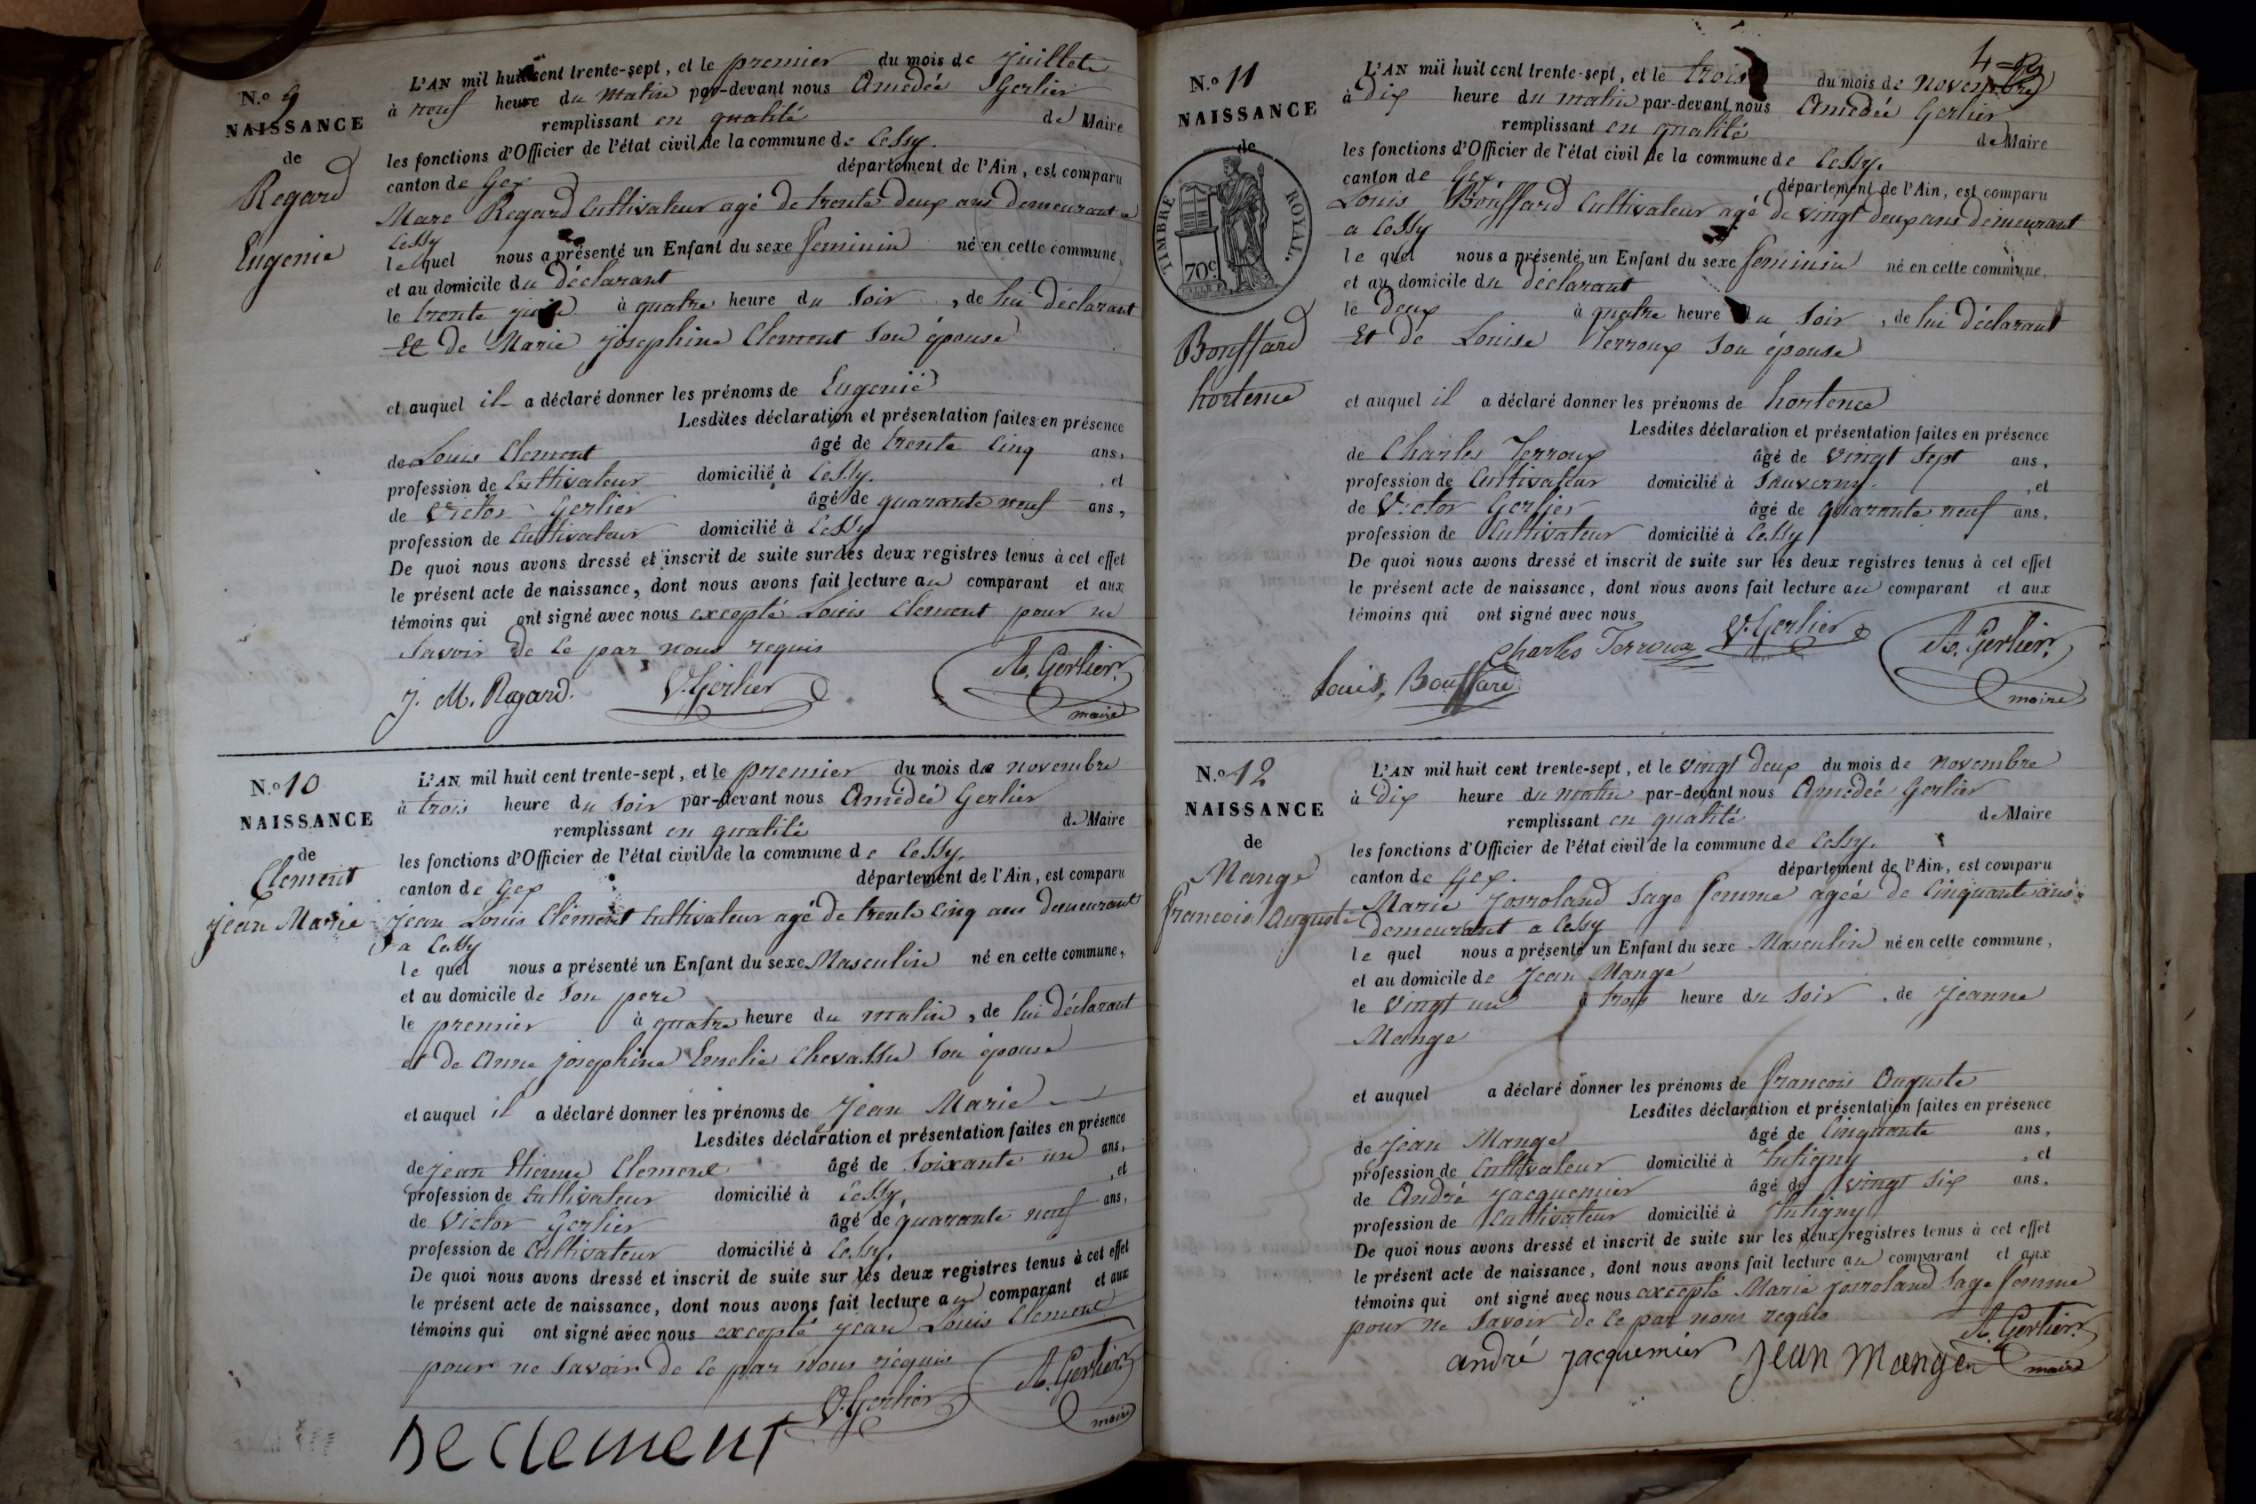 N.o 9
NAISSANCE
de
Regard
Eugenie
L'AN mil huit cent trente-sept, et le premier du mois de juillet
à neuf heure du matin par-devant nous Amédée Gerlier
remplissant en qualité de Maire
les fonctions d'Officier de l'état civil de la commune de Cessy.
canton de Gex département de l'Ain, est comparu
Marc Regard Cultivateur agé de trente deux ans demeurant a
Cessy
le quel nous a présenté un Enfant du sexe feminin né en cette commune,
et au domicile du déclarant
le trente juin à quatre heure du Soir, de lui déclarant
Et de Marie josephine Clement Son épouse
et auquel il a déclaré donner les prénoms de Eugenie
Lesdites déclaration et présentation faites en présence
de Louis Clement âgé de trente Cinq ans,
profession de Cultivateur domicilié à Cessy. , et
de Victor Gerlier âgé de quarante neuf ans,
profession de Cultivateur domicilié à Cessy
De quoi nous avons dressé et inscrit de suite sur les deux registres tenus à cet effet
le présent acte de naissance, dont nous avons fait lecture au comparant et aux
témoins qui ont signé avec nous excepté Louis Clement pour ne
Savoir de ce par nous requis
J. M. Regard. V. Gerlier A. Gerlier.
maire
N.o 10
NAISSANCE
de
Clement
jean Marie
L'AN mil huit cent trente-sept, et le premier du mois de novembre
à trois heure du Soir par-devant nous Amédée Gerlier
remplissant en qualité de Maire
les fonctions d'Officier de l'état civil de la commune de Cessy.
canton de Gex département de l'Ain, est comparu
jean Louis Clément Cultivateur agé de trente Cinq ans demeurant
a Cessy
le quel nous a présenté un Enfant du sexe Masculin né en cette commune,
et au domicile de Son pere
le premier à quatre heure du matin, de lui déclarant
et de Anne josephine Emelie Chevassu Son épouse
et auquel il a déclaré donner les prénoms de Jean Marie
Lesdites déclaration et présentation faites en présence
de jean Etienne Clement âgé de Soixante un ans,
profession de Cultivateur domicilié à Cessy, , et
de Victor Gerlier âgé de quarante neuf ans,
profession de Cultivateur domicilié à Cessy.
De quoi nous avons dressé et inscrit de suite sur les deux registres tenus à cet effet
le présent acte de naissance, dont nous avons fait lecture au comparant et aux
témoins qui ont signé avec nous excepté jean Louis Clement
pour ne Savoir de ce par nous requis
V. Gerlier A. Gerlier
maire
JE Clement
4
N.o 11
NAISSANCE
de
TIMBRE ROYAL.
70c
Bouffard
hortence
L'AN mil huit cent trente-sept, et le trois du mois de novembre
à Dix heure du matin par-devant nous Amédée Gerlier
remplissant en qualité de Maire
les fonctions d'Officier de l'état civil de la commune de Cessy.
canton de Gex. département de l'Ain, est comparu
Louis Bouffard Cultivateur agé de vingt deux ans demeurant
a Cessy
le quel nous a présenté un Enfant du sexe feminin né en cette commune.
et au domicile du déclarant
le deux à quatre heure du Soir, de lui déclarant
Et de Louise Terroux Son épouse
et auquel il a déclaré donner les prénoms de hortence
Lesdites déclaration et présentation faites en présence
de Charles Terroux âgé de vingt Sept ans,
profession de Cultivateur domicilié à Sauverny. , et
de Victor Gerlier âgé de quarante neuf ans,
profession de Cultivateur domicilié à Cessy
De quoi nous avons dressé et inscrit de suite sur les deux registres tenus à cet effet
le présent acte de naissance, dont nous avons fait lecture au comparant et aux
témoins qui ont signé avec nous
Charles Terroux V. Gerlier A. Gerlier.
Louis, Bouffard maire
N.o 12
NAISSANCE
de
Mange
francois Auguste
L'AN mil huit cent trente-sept, et le vingt deux du mois de novembre
à Dix heure du matin par-devant nous Amédée Gerlier
remplissant en qualité de Maire
les fonctions d'Officier de l'état civil de la commune de Cessy.
canton de Gex. département de l'Ain, est comparu
Marie Sage femme agée de Cinquante ans
Demeurant a Cessy
le quel nous a présenté un Enfant du sexe Masculin né en cette commune,
et au domicile de Jean Mange
le vingt un à trois heure du Soir, de Jeanne
Mange
et auquel a déclaré donner les prénoms de francois Auguste
Lesdites déclaration et présentation faites en présence
de Jean Mange âgé de Cinquante ans,
profession de Cultivateur domicilié à , et
de André Jacquemier âgé de vingt six ans,
profession de Cultivateur domicilié à
De quoi nous avons dressé et inscrit de suite sur les deux registres tenus à cet effet
le présent acte de naissance, dont nous avons fait lecture au comparant et aux
témoins qui ont signé avec nous excepté Marie Sage femme
pour ne Savoir de ce par nous requis
A. Gerlier.
andré jacquemier Jean Mange maire